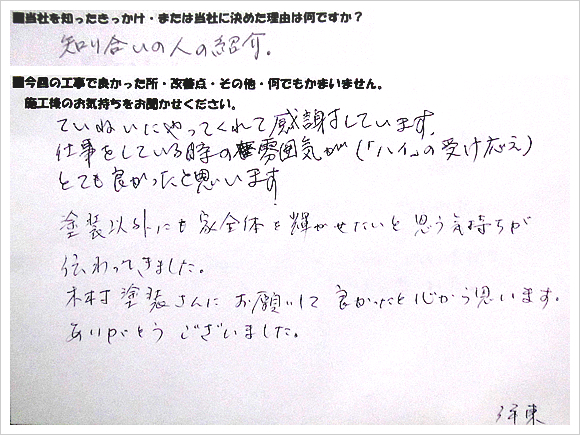 ■当社を知ったきっかけ・または当社に決めた理由は何ですか？
知り合いの人の紹介.
■今回の工事で良かった所・改善点・その他・何でもかまいません。
施工後のお気持ちをお聞かせください。
ていねいにやってくれて感謝しています.
仕事をしている時の雰囲気が(「ハイ」の受け応え)
とても良かったと思います!
塗装以外にも家全体を輝かせたいと思う気持ちが
伝わってきました。
木村塗装さんにお願いして良かったと心から思います.
ありがとうございました。
東